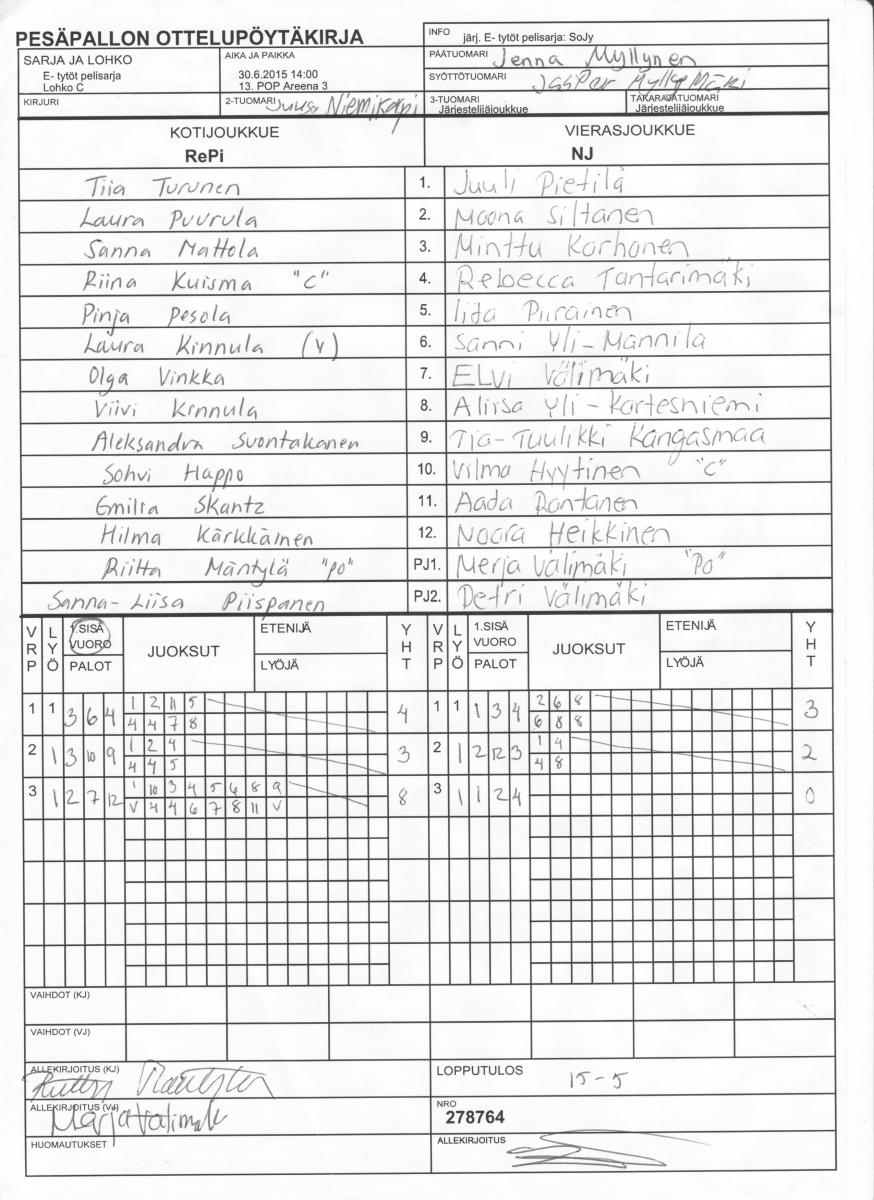 PESÄPALLON OTTELUPÖYTÄKIRJA
INFO järj. E- tytöt pelisarja: SoJy
PÄÄTUOMARI Jenna Myllynen
SARJA JA LOHKO
E- tytöt pelisarja
Lohko C
AIKA JA PAIKKA
30.6.2015 14:00
13. POP Areena 3
SYÖTTÖTUOMARI Jasper Myllymäki
KIRJURI
2-TUOMARI Juuso Niemikorpi
3-TUOMARI
Järjestelijäjoukkue
TAKARAJATUOMARI
Järjestelijäjoukkue
KOTIJOUKKUE VIERASJOUKKUE
RePi NJ
Tiia Turunen 1. Juuli Pietilä
Laura Puurula 2. Moona Siltanen
Sanna Mattola 3. Minttu Korhonen
Riina Kuisma "C" 4. Rebecca Tantarimäki
Pinja Pesola 5. Iida Piirainen
Laura Kinnula (V) 6. Sanni Yli-Mannila
Olga Vinkka 7. Elvi Välimäki
Viivi Kinnula 8. Aliisa Yli-Kortesniemi
Aleksandra Suontakanen 9. Tia-Tuulikki Kangasmaa
Sohvi Happo 10. Vilma Hyytinen "C"
Emilia Skantz 11. Aada Rantanen
Hilma Kärkkäinen 12. Noora Heikkinen
Riitta Mäntylä "PO" PJ1. Merja Välimäki "PO"
Sanna-Liisa Piispanen PJ2. Petri Välimäki
VRP LYÖ 1.SISÄ VUORO PALOT JUOKSUT ETENIJÄ LYÖJÄ YHT VRP LYÖ 1.SISÄ VUORO PALOT JUOKSUT ETENIJÄ LYÖJÄ YHT
1 1 3 6 4 1 2 11 5 4 1 1 1 3 4 2 6 8 3
4 4 7 8 6 8 8
2 1 3 10 9 1 2 4 3 2 1 2 12 3 1 4 2
4 4 5 4 8
3 1 2 7 12 1 10 3 4 5 6 8 9 8 3 1 1 2 4 0
V 4 4 6 7 8 11 V
VAIHDOT (KJ)
VAIHDOT (VJ)
ALLEKIRJOITUS (KJ)
LOPPUTULOS 15-5
ALLEKIRJOITUS (VJ) Merja Välimäki
NRO
278764
HUOMAUTUKSET
ALLEKIRJOITUS